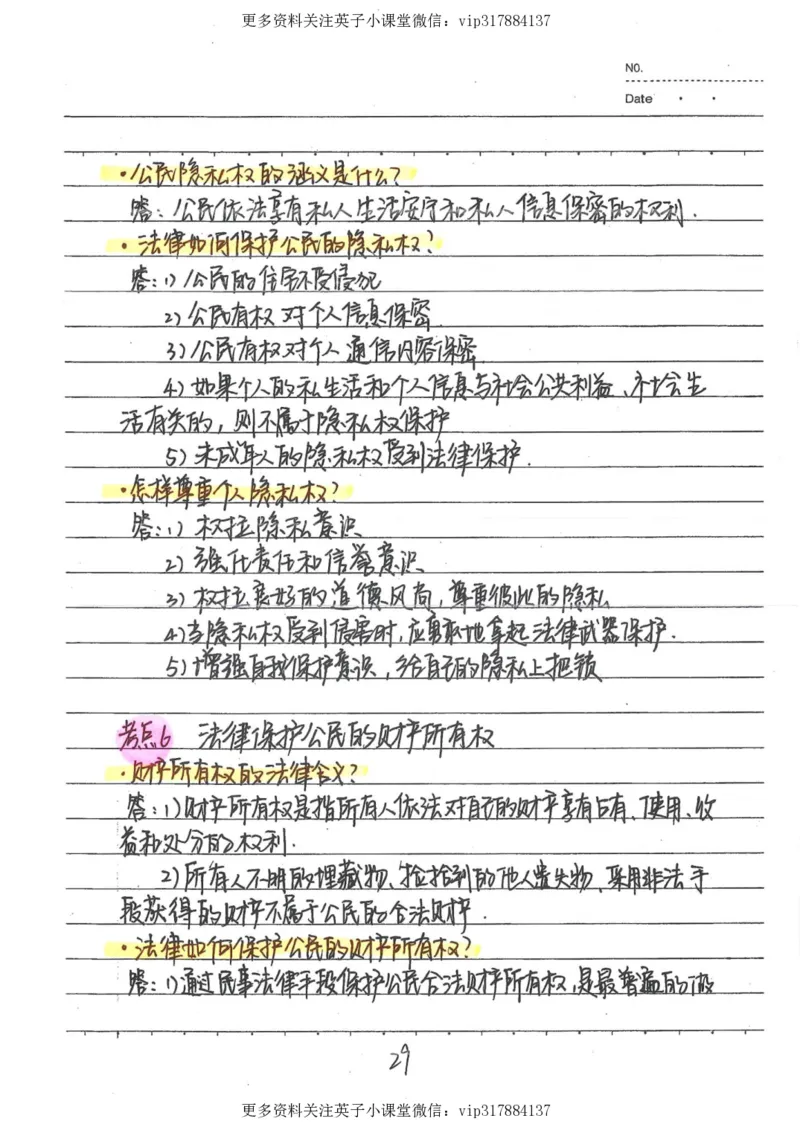 更多资料关注英子小课堂微信：vip317884137
NO.
Date
·公民隐私权的涵义是什么？
答：公民依法享有私人生活安宁和私人信息保密的权利.
·法律如何保护公民的隐私权？
答：1）公民的住宅不受侵犯
2）公民有权对个人信息保密
3）公民有权对个人通信内容保密
4）如果个人的私生活和个人信息与社会公共利益、社会生
活有关的，则不属于隐私权保护
5）未成年人的隐私权受到法律保护.
·怎样尊重个人隐私权？
答：1）树立隐私意识
2）强化责任和信誉意识
3）树立良好的道德风尚，尊重彼此的隐私
4）当隐私权受到侵害时，应勇敢地拿起法律武器保护.
5）增强自我保护意识，给自己的隐私上把锁
考点6 法律保护公民的财产所有权
·财产所有权的法律含义？
答：1）财产所有权是指所有人依法对自己的财产享有占有、使用、收
益和处分的权利.
2）所有人不明的埋藏物、捡拾到的他人遗失物、采用非法手
段获得的财产不属于公民的合法财产.
·法律如何保护公民的财产所有权？
答：1）通过民事法律手段保护公民合法财产所有权，是最普遍的做
29
更多资料关注英子小课堂微信：vip317884137